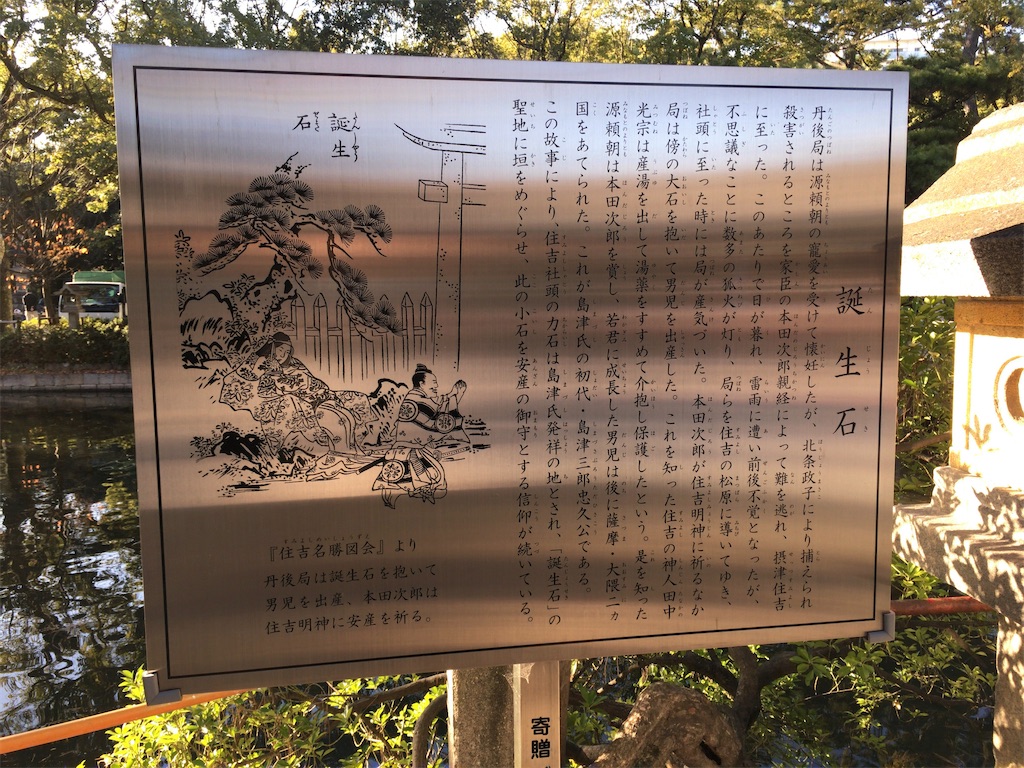 誕生石
丹後局は源頼朝の寵愛を受けて懐妊したが、北条政子により捕えられ
殺害されるところを家臣の本田次郎親経によって難を逃れ、摂津住吉
に至った。このあたりで日が暮れ、雷雨に遭い前後不覚となったが、
不思議なことに数多の狐火が灯り、局らを住吉の松原に導いてゆき、
社頭に至った時には局が産気づいた。本田次郎が住吉明神に祈るなか
局は傍の大石を抱いて男児を出産した。これを知った住吉の神人田中
光宗は産湯を出して湯薬をすすめて介抱し保護したという。是を知った
源頼朝は本田次郎を賞し、若君に成長した男児は後に薩摩・大隈二ヵ
国をあてられた。これが島津氏の初代・島津三郎忠久公である。
この故事により、住吉社頭の力石は島津氏発祥の地とされ、「誕生石」の
聖地に垣をめぐらせ、此の小石を安産の御守とする信仰が続いている。
誕生
石
『住吉名勝図会』より
丹後局は誕生石を抱いて
男児を出産、本田次郎は
住吉明神に安産を祈る。
寄贈